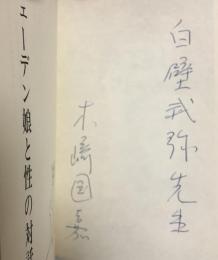 白壁武弥先生
木崎国嘉
ェーデン娘と性の対話